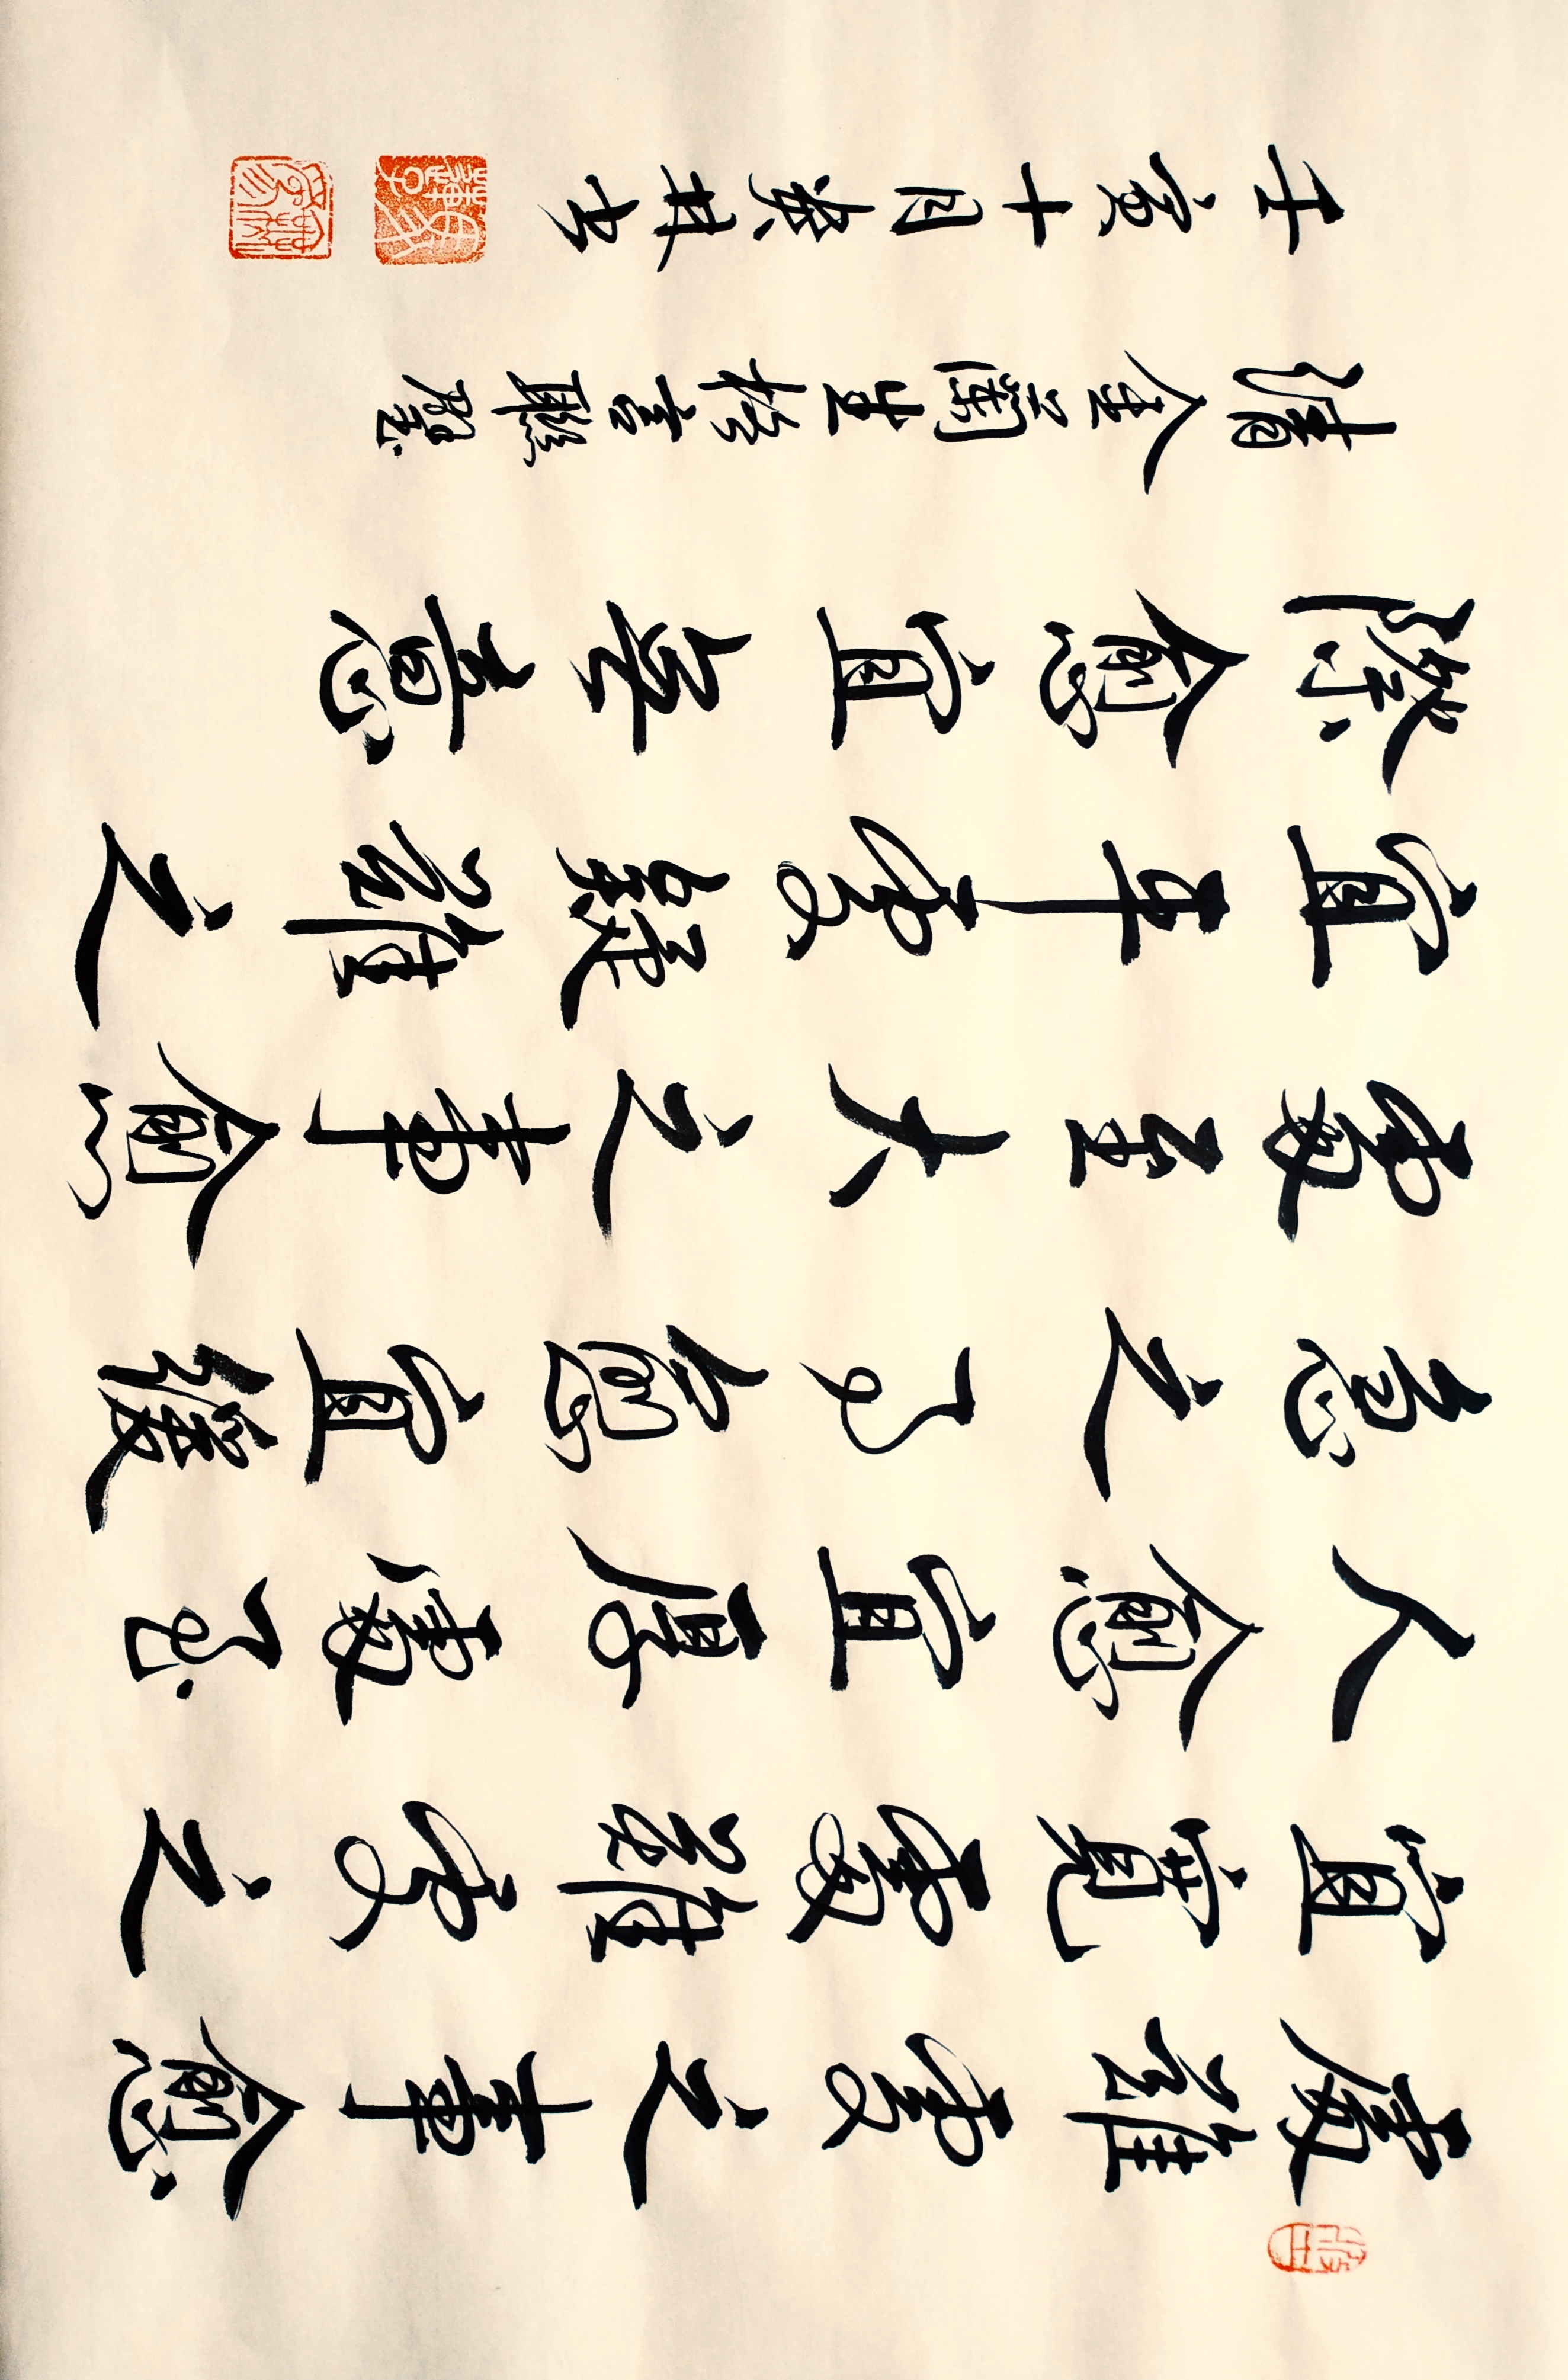 處難處之事愈
宜寬處難處之
人愈宜厚處至
急之事愈宜緩
處至大之事愈
宜平處疑難之
際愈宜無意
清金蘭生格言聯璧
壬寅十月其書